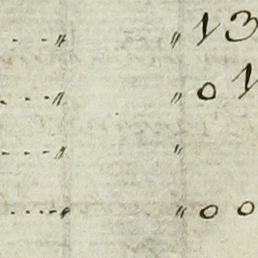 ...〃 〃 13
....〃 〃 01
....〃 〃
....〃 〃 00